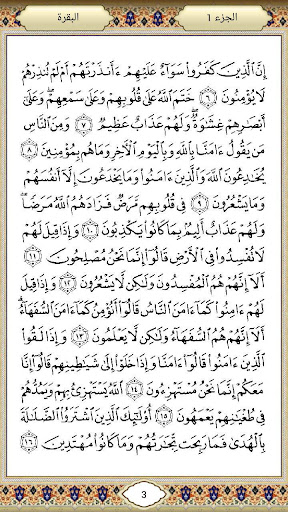 الجزء 1 البقرة
إِنَّ ٱلَّذِينَ كَفَرُوا۟ سَوَآءٌ عَلَيْهِمْ ءَأَنذَرْتَهُمْ أَمْ لَمْ تُنذِرْهُمْ
لَا يُؤْمِنُونَ ٦ خَتَمَ ٱللَّهُ عَلَىٰ قُلُوبِهِمْ وَعَلَىٰ سَمْعِهِمْ ۖ وَعَلَىٰٓ
أَبْصَٰرِهِمْ غِشَٰوَةٌ ۖ وَلَهُمْ عَذَابٌ عَظِيمٌ ٧ وَمِنَ ٱلنَّاسِ
مَن يَقُولُ ءَامَنَّا بِٱللَّهِ وَبِٱلْيَوْمِ ٱلْءَاخِرِ وَمَا هُم بِمُؤْمِنِينَ ٨
يُخَٰدِعُونَ ٱللَّهَ وَٱلَّذِينَ ءَامَنُوا۟ وَمَا يَخْدَعُونَ إِلَّآ أَنفُسَهُمْ
وَمَا يَشْعُرُونَ ٩ فِى قُلُوبِهِم مَّرَضٌ فَزَادَهُمُ ٱللَّهُ مَرَضًا ۖ
وَلَهُمْ عَذَابٌ أَلِيمٌۢ بِمَا كَانُوا۟ يَكْذِبُونَ ١٠ وَإِذَا قِيلَ لَهُمْ
لَا تُفْسِدُوا۟ فِى ٱلْأَرْضِ قَالُوٓا۟ إِنَّمَا نَحْنُ مُصْلِحُونَ ١١
أَلَآ إِنَّهُمْ هُمُ ٱلْمُفْسِدُونَ وَلَٰكِن لَّا يَشْعُرُونَ ١٢ وَإِذَا قِيلَ
لَهُمْ ءَامِنُوا۟ كَمَآ ءَامَنَ ٱلنَّاسُ قَالُوٓا۟ أَنُؤْمِنُ كَمَآ ءَامَنَ ٱلسُّفَهَآءُ ۗ
أَلَآ إِنَّهُمْ هُمُ ٱلسُّفَهَآءُ وَلَٰكِن لَّا يَعْلَمُونَ ١٣ وَإِذَا لَقُوا۟
ٱلَّذِينَ ءَامَنُوا۟ قَالُوٓا۟ ءَامَنَّا وَإِذَا خَلَوْا۟ إِلَىٰ شَيَٰطِينِهِمْ قَالُوٓا۟ إِنَّا
مَعَكُمْ إِنَّمَا نَحْنُ مُسْتَهْزِءُونَ ١٤ ٱللَّهُ يَسْتَهْزِئُ بِهِمْ وَيَمُدُّهُمْ
فِى طُغْيَٰنِهِمْ يَعْمَهُونَ ١٥ أُو۟لَٰٓئِكَ ٱلَّذِينَ ٱشْتَرَوُا۟ ٱلضَّلَٰلَةَ
بِٱلْهُدَىٰ فَمَا رَبِحَت تِّجَٰرَتُهُمْ وَمَا كَانُوا۟ مُهْتَدِينَ ١٦
3